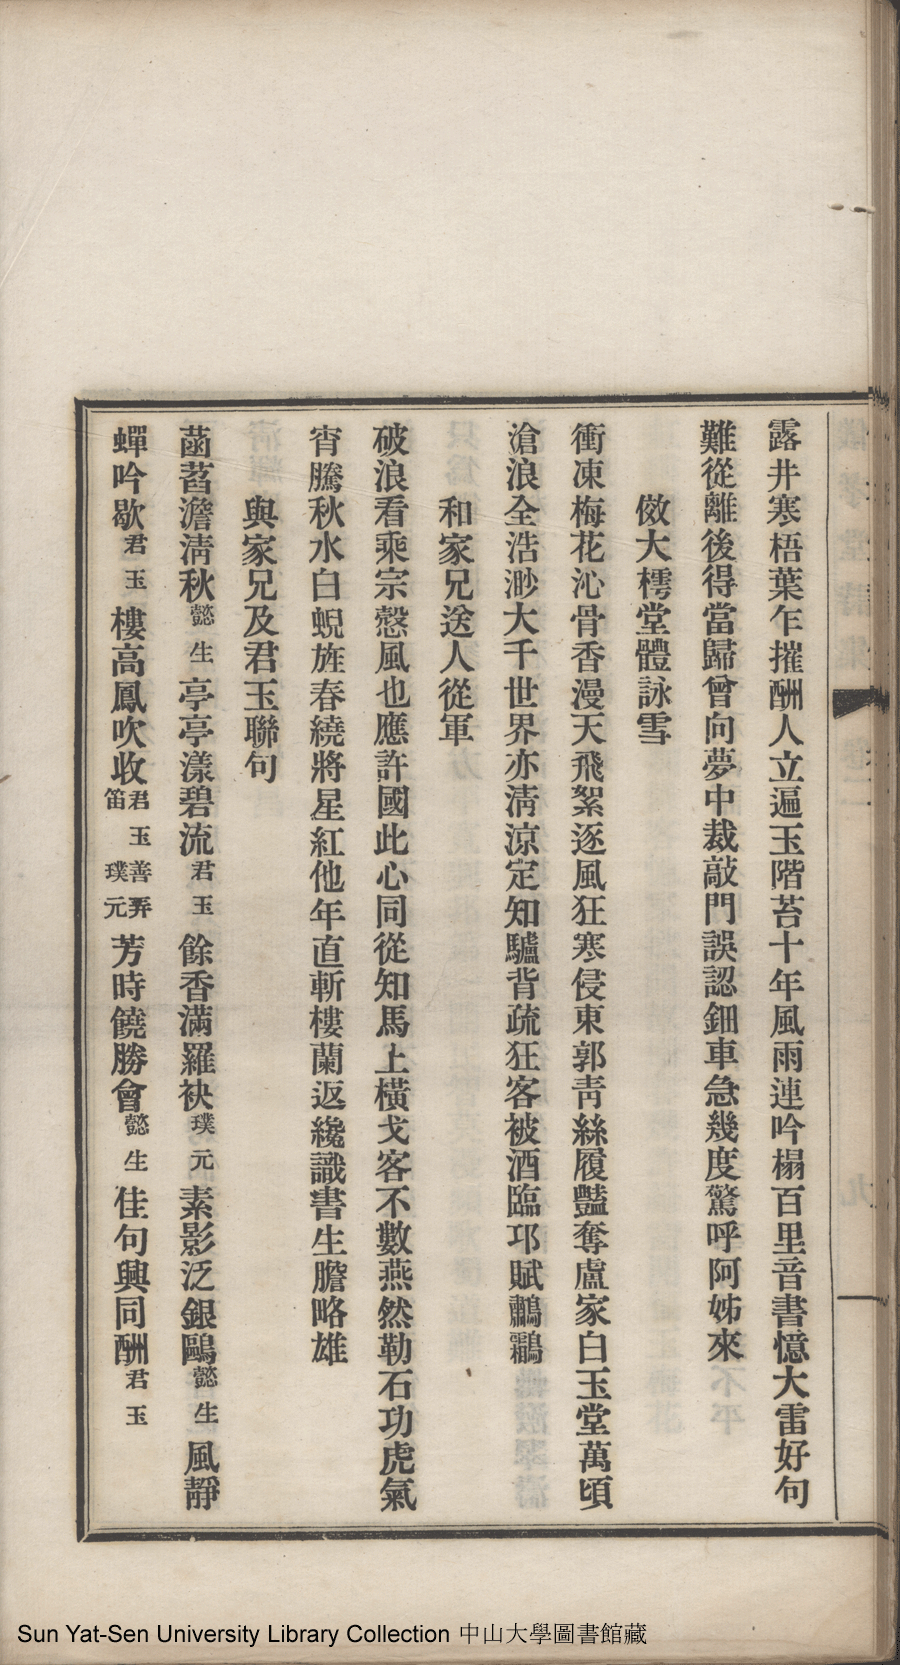 露井寒梧葉乍摧酬人立遍玉階苔十年風雨連吟榻百里音書憶大雷好句
難從離後得當歸曾向夢中裁敲門誤認鈿車急幾度驚呼阿姊來
倣大樗堂體詠雪
衝凍梅花沁骨香漫天飛絮逐風狂寒侵東郭靑絲履豔奪盧家白玉堂萬頃
滄浪全浩渺大千世界亦淸涼定知驢背疏狂客被酒臨邛賦鷫鸘
和家兄送人從軍
破浪看乘宗愨風也應許國此心同從知馬上橫戈客不數燕然勒石功虎氣
宵騰秋水白蜺旌春繞將星紅他年直斬樓蘭返纔識書生膽略雄
與家兄及君玉聯句
菡萏澹淸秋懿生亭亭漾碧流君玉餘香滿羅袂璞元素影泛銀鷗懿生風靜
蟬吟歇君玉樓高鳳吹收君玉善弄笛璞元芳時饒勝會懿生佳句興同酬君玉
Sun Yat-Sen University Library Collection 中山大學圖書館藏